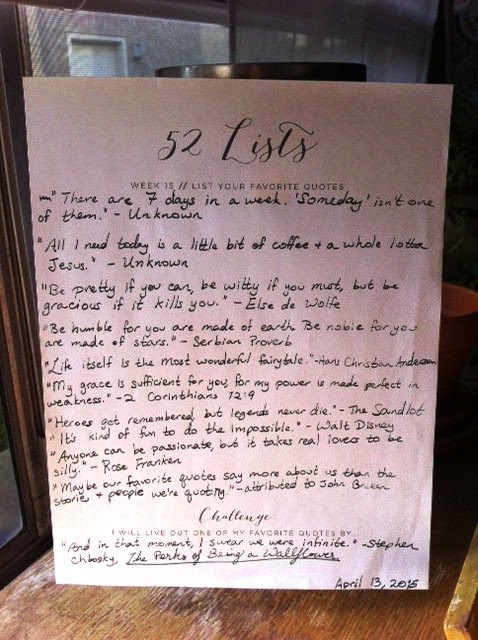 52 Lists
WEEK 15 // LIST YOUR FAVORITE QUOTES
"There are 7 days in a week. 'Someday' isn't one
of them." - Unknown
"All I need today is a little bit of coffee + a whole lotta
Jesus." - Unknown
"Be pretty if you can, be witty if you must, but be
gracious if it kills you." - Else de Wolfe
"Be humble for you are made of earth. Be noble for you
are made of stars." - Serbian Proverb
"Life itself is the most wonderful fairytale." - Hans Christian Andersen
"My grace is sufficient for you, for my power is made perfect in
weakness." - 2 Corinthians 12:9
"Heroes get remembered, but legends never die." - The Sandlot
"It's kind of fun to do the impossible." - Walt Disney
"Anyone can be passionate, but it takes real lovers to be
silly." - Rose Franken
"Maybe our favorite quotes say more about us than the
stories + people we're quoting." - attributed to John Green
Challenge:
I WILL LIVE OUT ONE OF MY FAVORITE QUOTES BY...
"And in that moment, I swear we were infinite." - Stephen
Chbosky, The Perks of Being a Wallflower
April 13, 2015